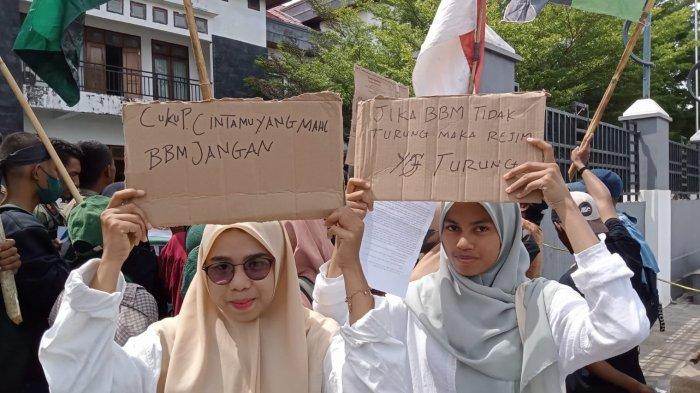 CUKUP CINTAMU YANG MAHL
BBM JANGAN
JIKA BBM TIDAK
TURUNG MAKA REJIM
YG TURUNG